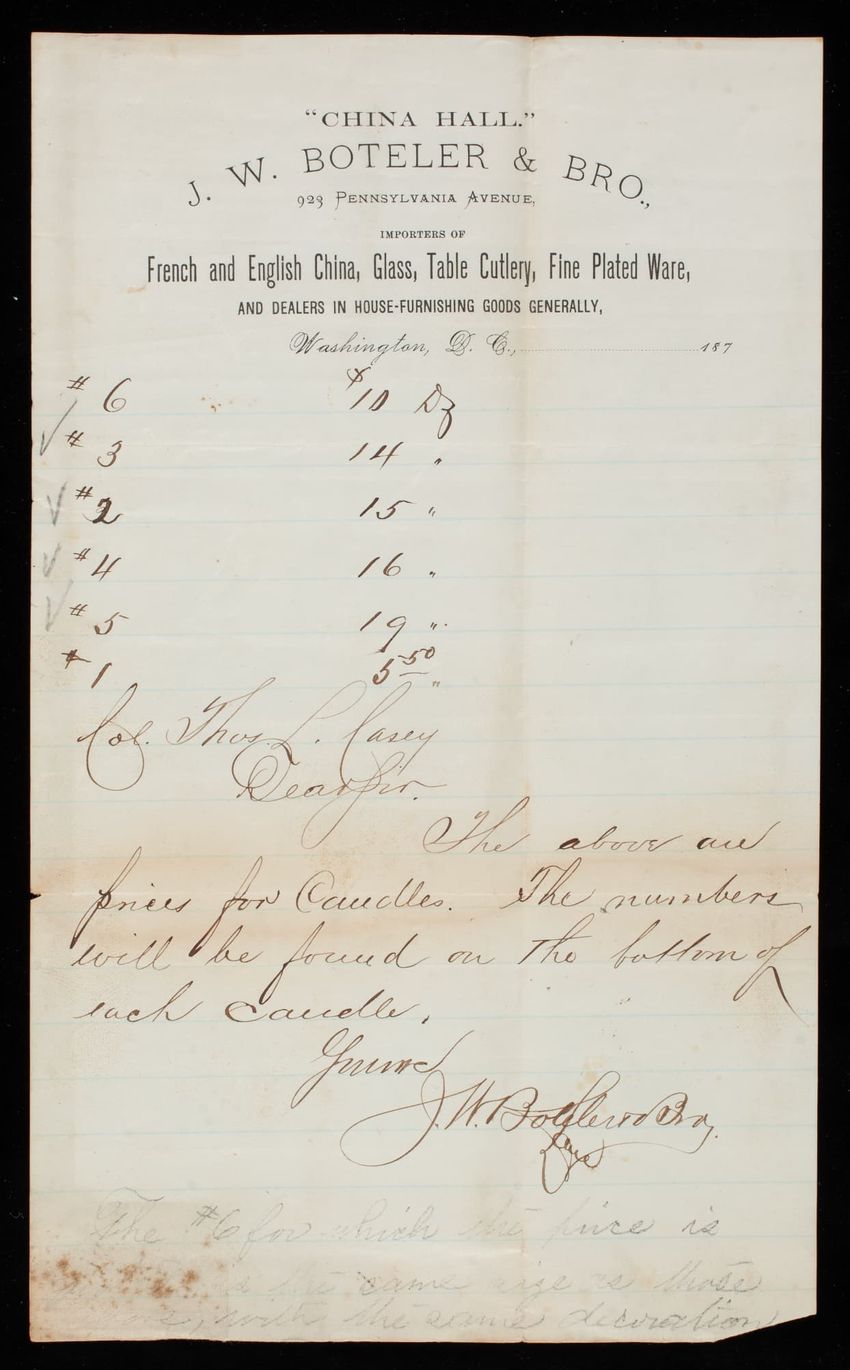 "CHINA HALL."
J. W. BOTELER & BRO.,
923 PENNSYLVANIA AVENUE,
IMPORTERS OF
French and English China, Glass, Table Cutlery, Fine Plated Ware,
AND DEALERS IN HOUSE-FURNISHING GOODS GENERALLY,
Washington, D. C., 187
# 6 $10 Dz
# 3 14 "
# 2 15 "
# 4 16 "
# 5 19 "
# 1 5 50 "
Col. Thos. L. Casey
Dear Sir.
The above are
prices for Candles. The numbers
will be found on the bottom of
each candle.
Yours
J. W. Boteler & Bro.
The #6 for which the price is
the same size as those
with the same decoration